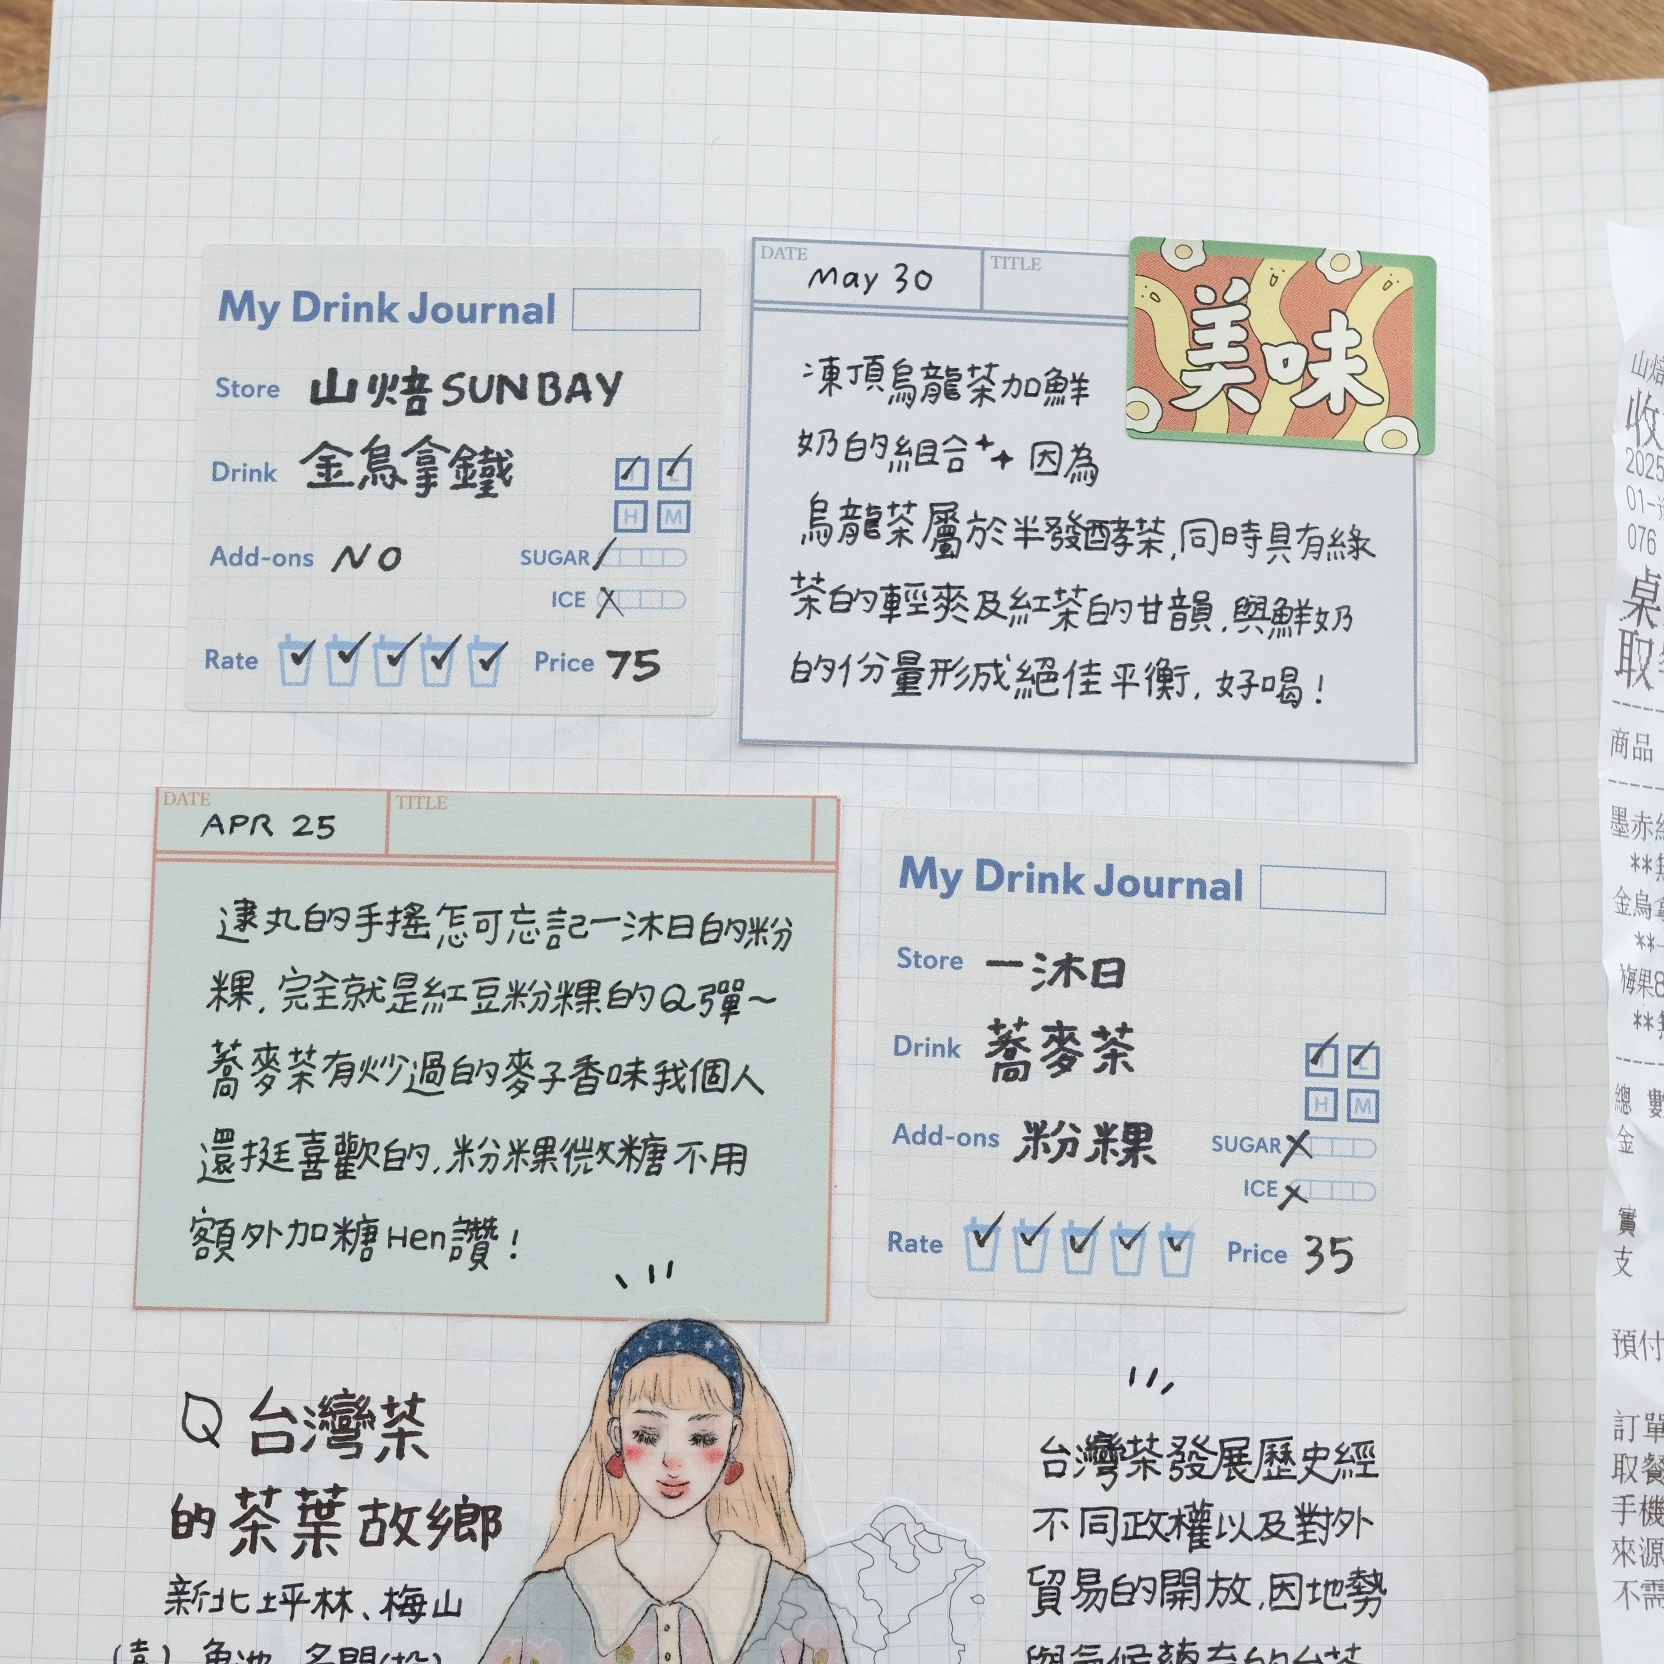 My Drink Journal
Store 山焙 SUNBAY
Drink 金烏拿鐵
H M
Add-ons NO
SUGAR
ICE
Rate
Price 75
DATE May 30
TITLE
美味
凍頂烏龍茶加鮮
奶的組合 因為
烏龍茶屬於半發酵茶,同時具有綠
茶的輕爽及紅茶的甘韻,與鮮奶
的份量形成絕佳平衡,好喝!
DATE APR 25
TITLE
逮丸的手搖怎可忘記一沐日的粉
粿,完全就是紅豆粉粿的Q彈~
蕎麥茶有炒過的麥子香味我個人
還挺喜歡的,粉粿微糖不用
額外加糖Hen讚!
My Drink Journal
Store 一沐日
Drink 蕎麥茶
H M
Add-ons 粉粿
SUGAR
ICE
Rate
Price 35
Q 台灣茶
的茶葉故鄉
新北坪林、梅山
台灣茶發展歷史經
不同政權以及對外
貿易的開放,因地勢
山焙
收
2025
01-
076
桌
取
商品
墨赤
**
金烏拿
**
梅果8
**
總 數
金
實
支
預付
訂單
取餐
手機
來源
不需